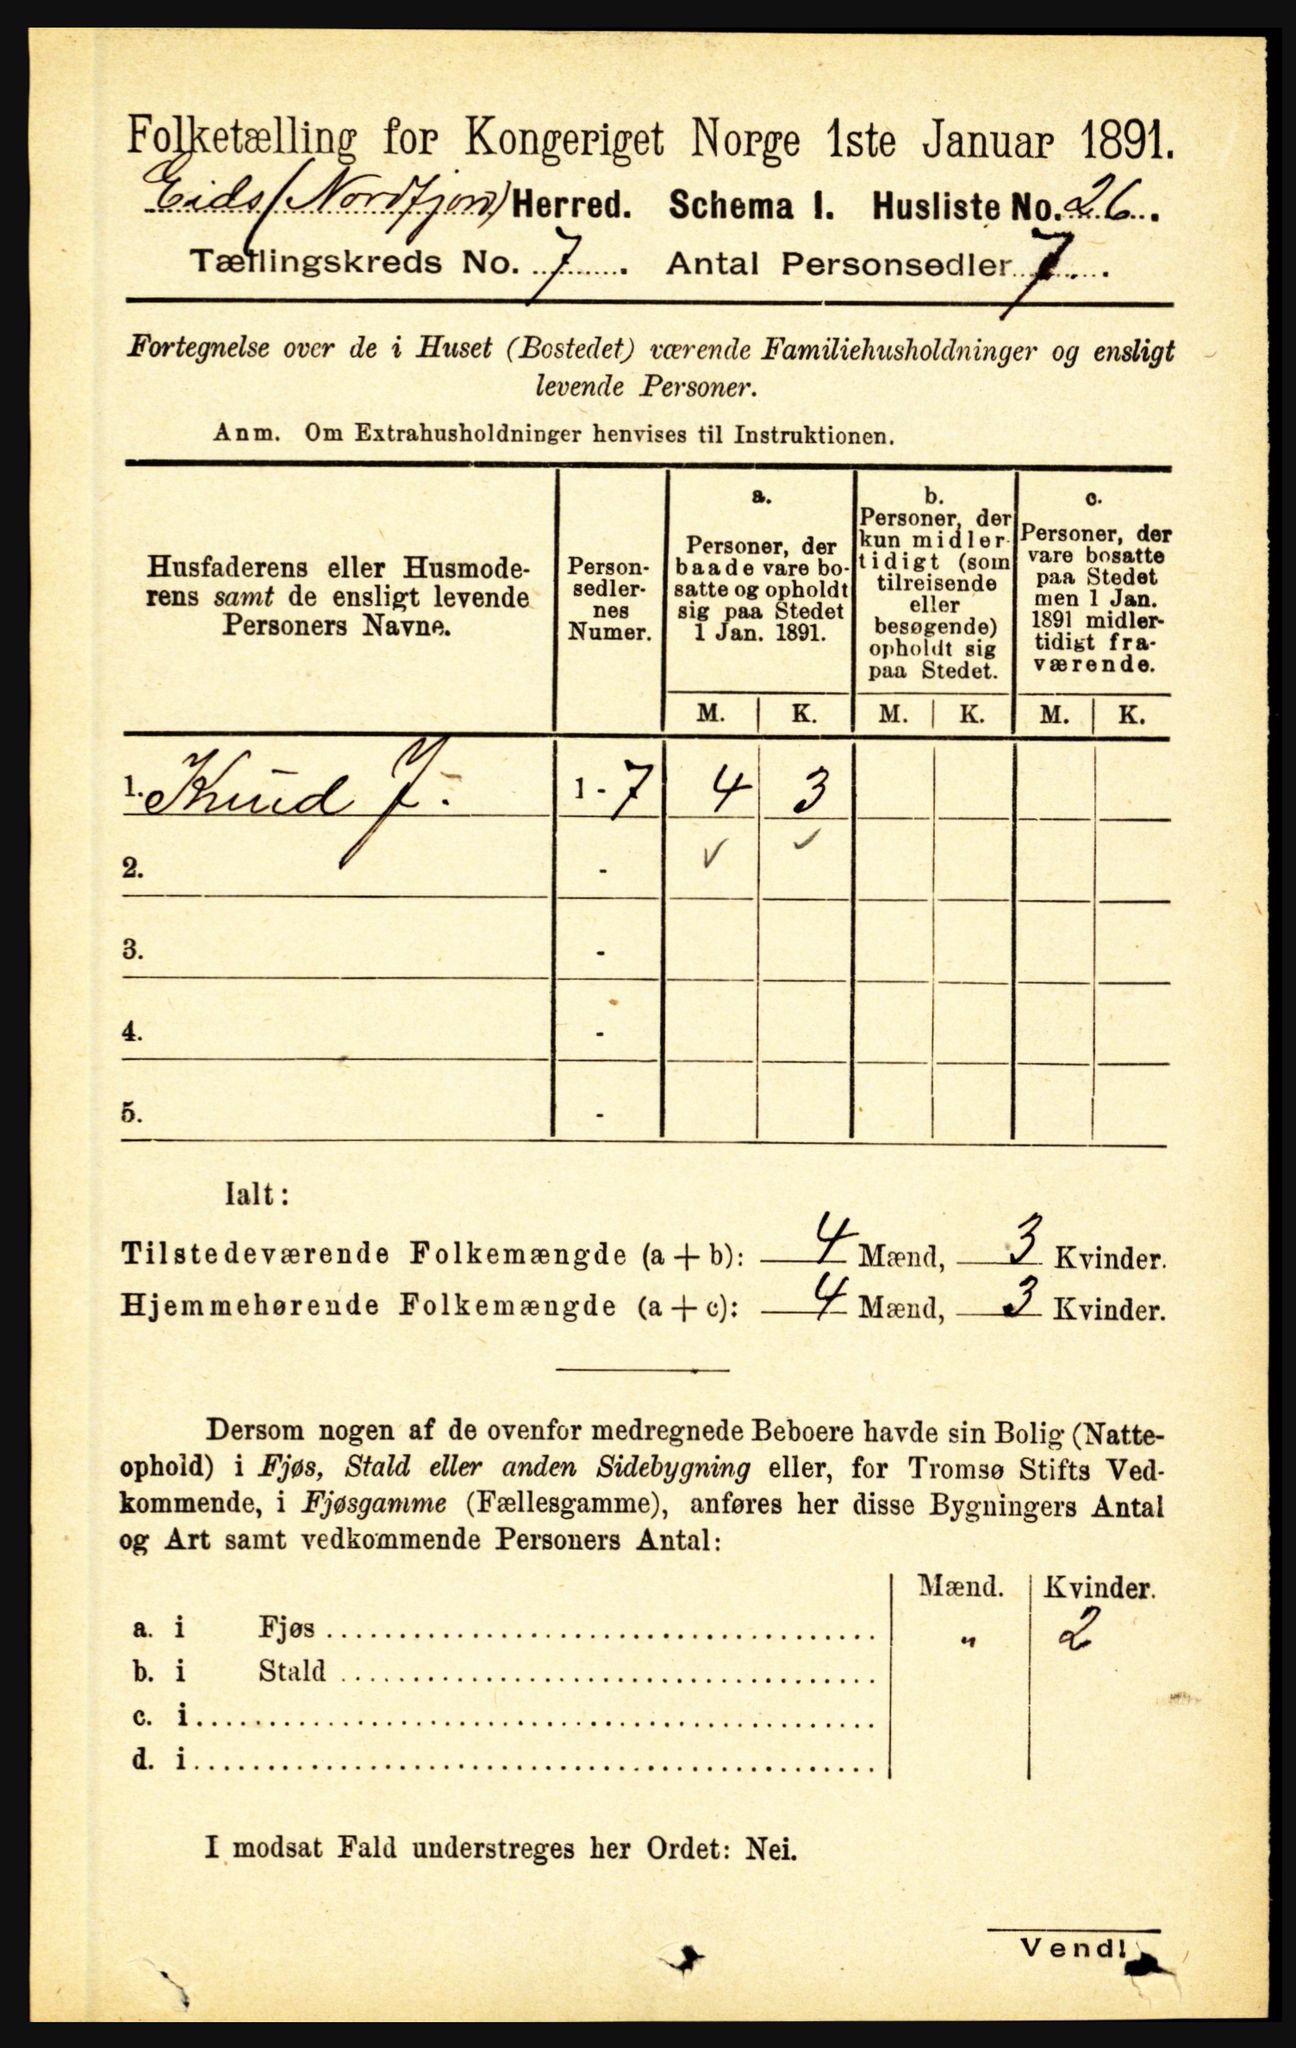 Folketælling for Kongeriget Norge 1ste Januar 1891.
Eids (Nordfjord) Herred. Schema I. Husliste No. 26.
Tællingskreds No. 7. Antal Personsedler 7.
Fortegnelse over de i Huset (Bostedet) værende Familiehusholdninger og ensligt
levende Personer.
Anm. Om Extrahusholdninger henvises til Instruktionen.
Husfaderens eller Husmode-
rens samt de ensligt levende
Personers Navne.
Person-
sedler-
nes
Numer.
a.
Personer, der
baade vare bo-
satte og opholdt
sig paa Stedet
1 Jan. 1891.
b.
Personer, der
kun midler-
tidigt (som
tilreisende
eller
besøgende)
opholdt sig
paa Stedet.
c.
Personer, der
vare bosatte
paa Stedet
men 1 Jan.
1891 midler-
tidigt fra-
værende.
M. K. M. K. M. K.
1. Knud J. 1 - 7 4 3
2. - ✓ ✓
3. -
4. -
5. -
Ialt:
Tilstedeværende Folkemængde (a + b): 4 Mænd, 3 Kvinder.
Hjemmehørende Folkemængde (a + c): 4 Mænd, 3 Kvinder.
Dersom nogen af de ovenfor medregnede Beboere havde sin Bolig (Natte-
ophold) i Fjøs, Stald eller anden Sidebygning eller, for Tromsø Stifts Ved-
kommende, i Fjøsgamme (Fællesgamme), anføres her disse Bygningers Antal
og Art samt vedkommende Personers Antal:
Mænd. Kvinder.
a. i Fjøs „ 2
b. i Stald
c. i
d. i
I modsat Fald understreges her Ordet: Nei.
Vend!